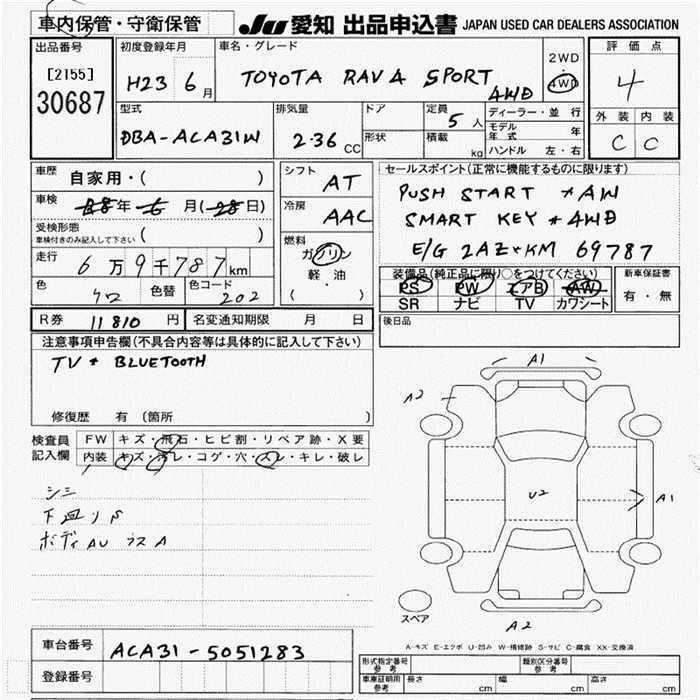 車内保管・守衛保管
JU 愛知 出品申込書 JAPAN USED CAR DEALERS ASSOCIATION
出品番号
[2155]
30687
初度登録年月
H23 6月
車名・グレード
TOYOTA RAV4 SPORT
4WD
2WD
4WD
評価点
4
外装 内装
C C
型式
DBA-ACA31W
排気量
2.36 CC
ドア
形状
定員
5人
積載
kg
ディーラー・並行
モデル年式 年
ハンドル 左・右
車歴 自家用・( )
車検 28年 6月(28日)
受検形態
車検付きのみ記入して下さい ( )
走行 6万9千787km
色 クロ 色替 色コード 202
R券 11810円 名変通知期限 月 日
シフト AT
冷房 AAC
燃料
ガソリン
軽油
( ・ )
セールスポイント(正常に機能するものに限ります)
PUSH START *AW
SMART KEY *4WD
E/G 2AZ*KM 69787
装備品(純正品に限り○をつけてください)
PS PW エアB AW
SR ナビ TV カワシート
新車保証書
有・無
後日品
注意事項申告欄(不具合内容等は具体的に記入して下さい)
TV * BLUETOOTH
修復歴 有 (箇所 )
検査員記入欄
FW キズ・飛石・ヒビ割・リペア跡・X要
内装 キズ・汚レ・コゲ・穴・スレ・キレ・破レ
シミ
下廻リ
ボディ
A1
A2
U2
A1
A2
スペア
A-キズ E-エクボ U-凹み W-補修跡 S-サビ C-腐食 XX-交換済
車台番号 ACA31-5051283
登録番号
形式指定番号 参考
類別区分番号 参考
車庫証明用 参考 長さ cm 幅 cm 高さ cm